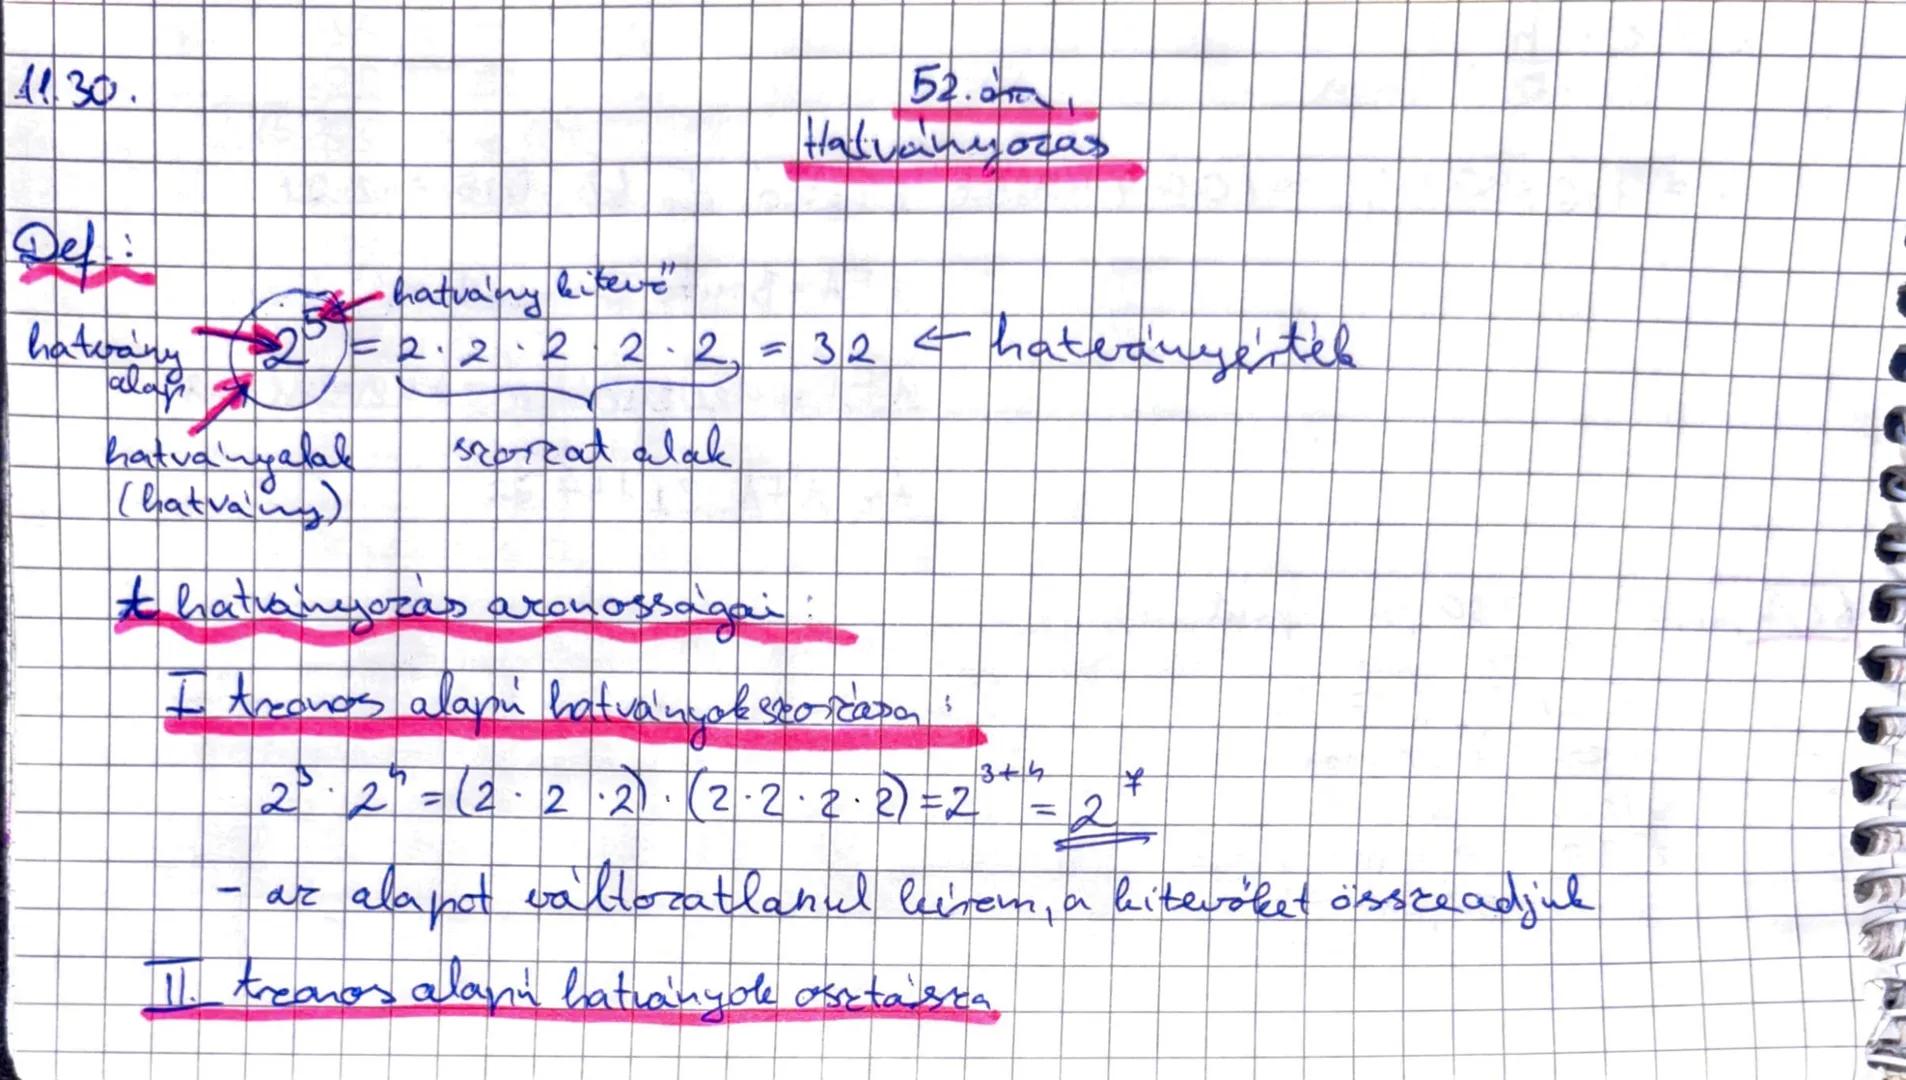 11.30.
52. óra
Hatványozás
Def.:
hatvány kitevő
hatvány alap
2⁵ = 2 · 2 · 2 · 2 · 2 = 32 ← hatványérték
hatványalak
(hatvány)
szorzat alak
A hatványozás azonosságai:
I Azonos alapú hatványok szorzása:
2³ · 2⁴ = (2 · 2 · 2) · (2 · 2 · 2 · 2) = 2³⁺⁴ = 2⁷
- az alapot változatlanul leírom, a kitevőket összeadjuk
II. Azonos alapú hatványok osztássa